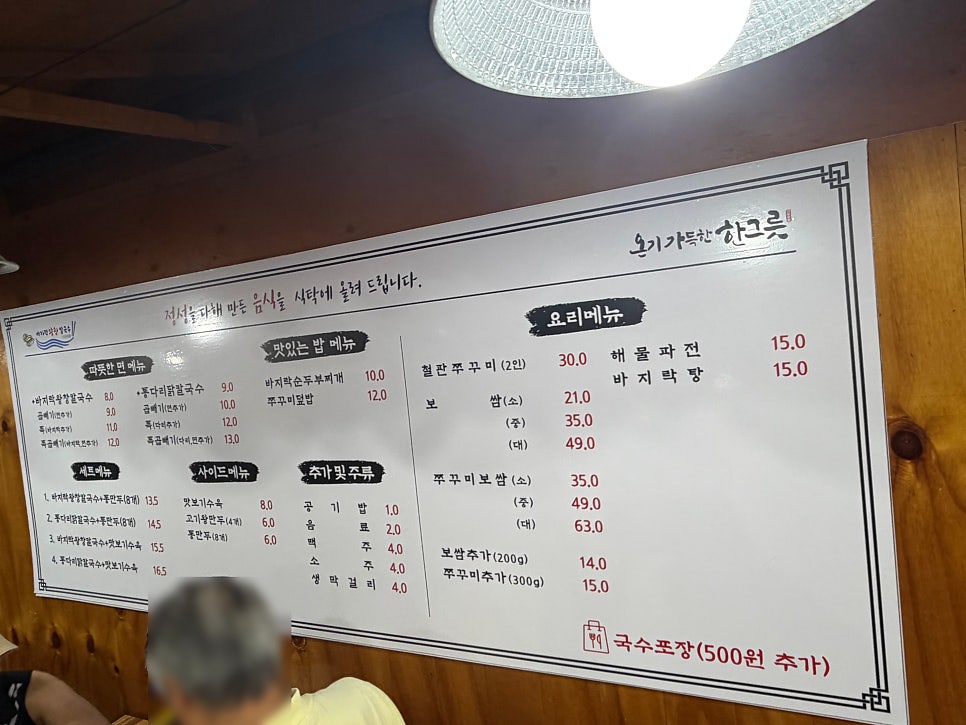 온기 가득한 한그릇
정성을 다해 만든 음식을 식탁에 올려 드립니다.
따뜻한 면 메뉴
•바지락왕창칼국수 8.0
곱빼기(면추가) 9.0
특(바지락추가) 11.0
특곱빼기(바지락,면추가) 12.0
•통다리닭칼국수 9.0
곱빼기(면추가) 10.0
특(다리추가) 12.0
특곱빼기(다리,면추가) 13.0
맛있는 밥 메뉴
바지락순두부찌개 10.0
쭈꾸미덮밥 12.0
세트메뉴
1. 바지락왕창칼국수+통만두(8개) 13.5
2. 통다리닭칼국수+통만두(8개) 14.5
3. 바지락왕창칼국수+맛보기수육 15.5
4. 통다리닭칼국수+맛보기수육 16.5
사이드메뉴
맛보기수육 8.0
고기왕만두(4개) 6.0
통만두(8개) 6.0
추가 및 주류
공기밥 1.0
음료 2.0
맥주 4.0
소주 4.0
생막걸리 4.0
요리메뉴
철판쭈꾸미(2인) 30.0
보쌈(소) 21.0
(중) 35.0
(대) 49.0
쭈꾸미보쌈(소) 35.0
(중) 49.0
(대) 63.0
보쌈추가(200g) 14.0
쭈꾸미추가(300g) 15.0
해물파전 15.0
바지락탕 15.0
국수포장(500원 추가)